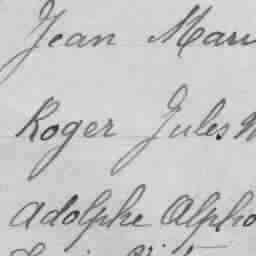 Jean Mari
Roger Jules
Adolphe Alpho